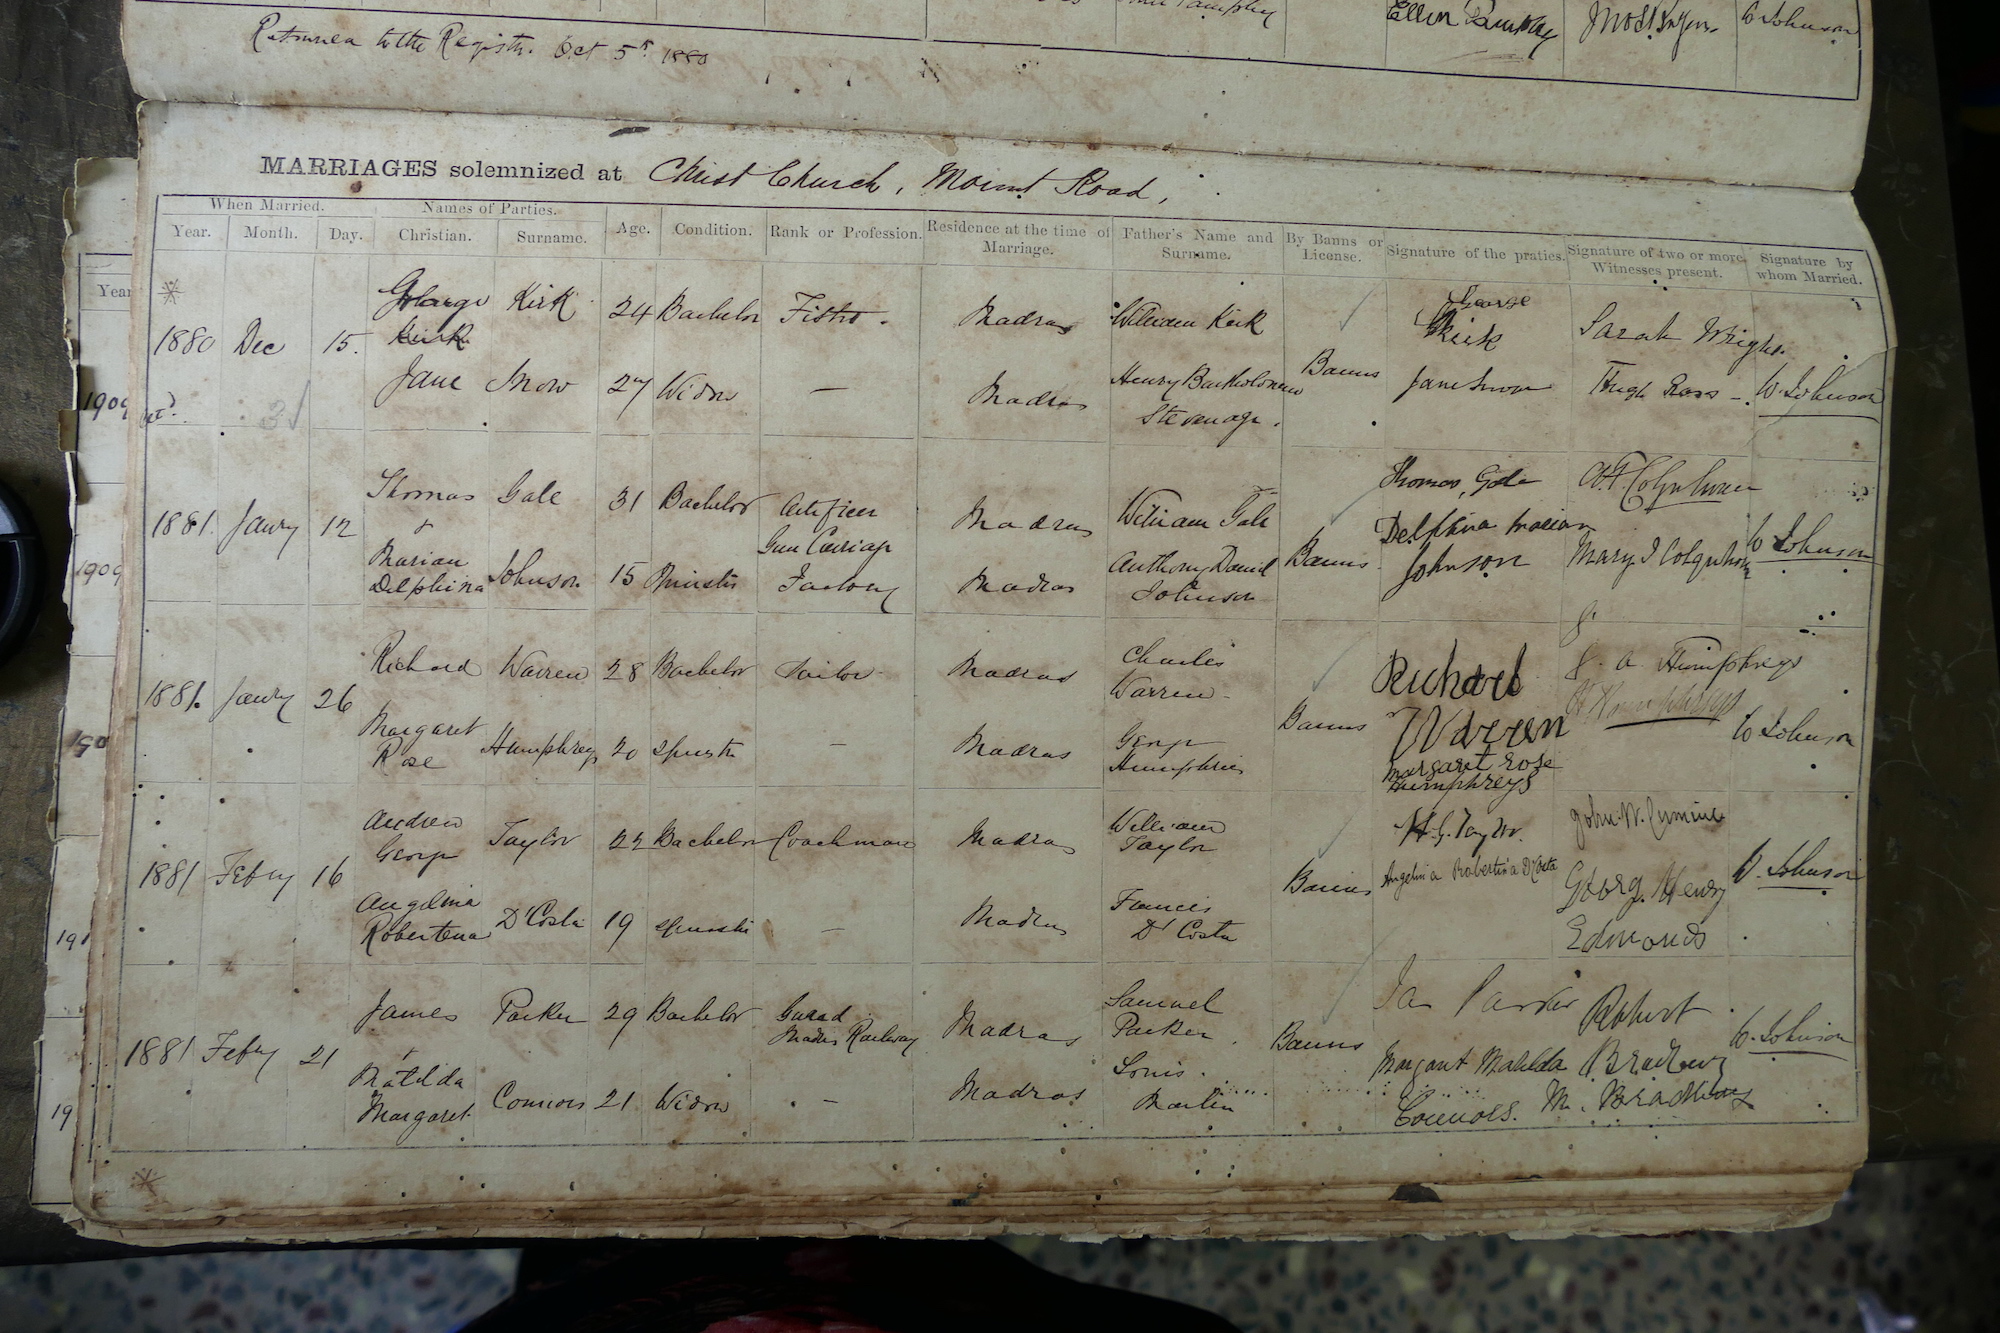 Ellen
W Johnson
Returned to the Registr. Oct 5th 1880
MARRIAGES solemnized at Christ Church, Mount Road,
When Married. Names of Parties. Age. Condition. Rank or Profession. Residence at the time of Marriage. Father's Name and Surname. By Banns or License. Signature of the praties. Signature of two or more Witnesses present. Signature by whom Married.
Year. Month. Day. Christian. Surname.
Year
George Kirk 24 Bachelor Madras William Kirk George
1880 Dec 15. Kirk Kirk Sarah Wright
Jane Snow 27 Widow — Madras Henry Bartholomew Banns Jane Snow Hugh Ross W. Johnson
Stevenage.
1909
31
Thomas Gale 31 Bachelor Artificer Madras William Gale Thomas, Gale
1881. Janry 12 & Gun Carriage Delphina Marian
Marian Johnson 15 Spinster Factory Madras Anthony Daniel Banns Johnson Mary I Colquhoun W Johnson
Delphina Johnson
1909
Richard Warren 28 Bachelor Tailor Madras Charles Richard J. A. Humphreys
1881. Janry 26 Warren Warren
Margaret Humphreys 20 Spinster — Madras George Banns Margaret Rose W Johnson
Rose Humphries Humphreys
190
Andrew Taylor 22 Bachelor Coachman Madras William A. G. Taylor.
George Taylor
1881 Febry 16 Banns Angelina Robertina D'Costa George Henry W. Johnson
Angelina D'Costa 19 Spinster — Madras Francis Edmonds
Robertena D'Costa
191
James Parker 29 Bachelor Guard Madras Samuel Jas Parker Robert
Madras Railway Parker
1881 Febry 21 & Banns Margaret Matilda Bradbury W. Johnson
Matilda Connors 21 Widow — Madras Louis Connors. M. Bradbury
Margaret Martin
19